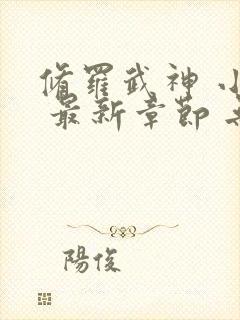 脩羅武神 小
最新章節 
陽俊